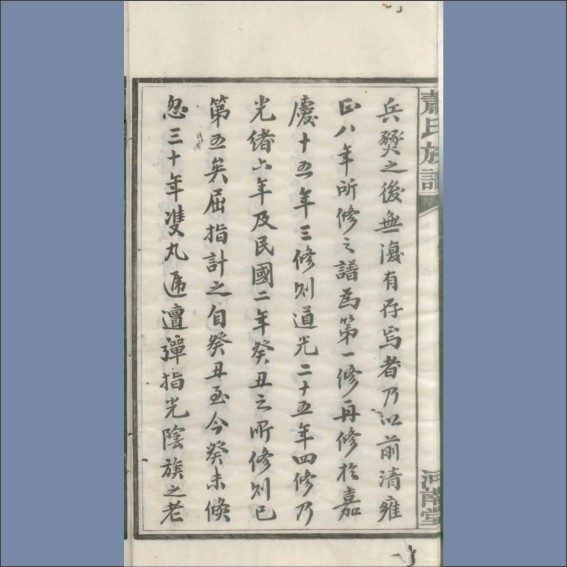 蕭氏族譜
河南堂
兵燹之後無復有存焉者乃以前清雍
正八年所修之譜為第一修再修於嘉
慶十五年三修則道光二十五年四修乃
光緒六年及民國二年癸丑之所修則已
第五矣屈指計之自癸丑至今癸未倏
忽三十年雙丸遞邅彈指光陰族之老